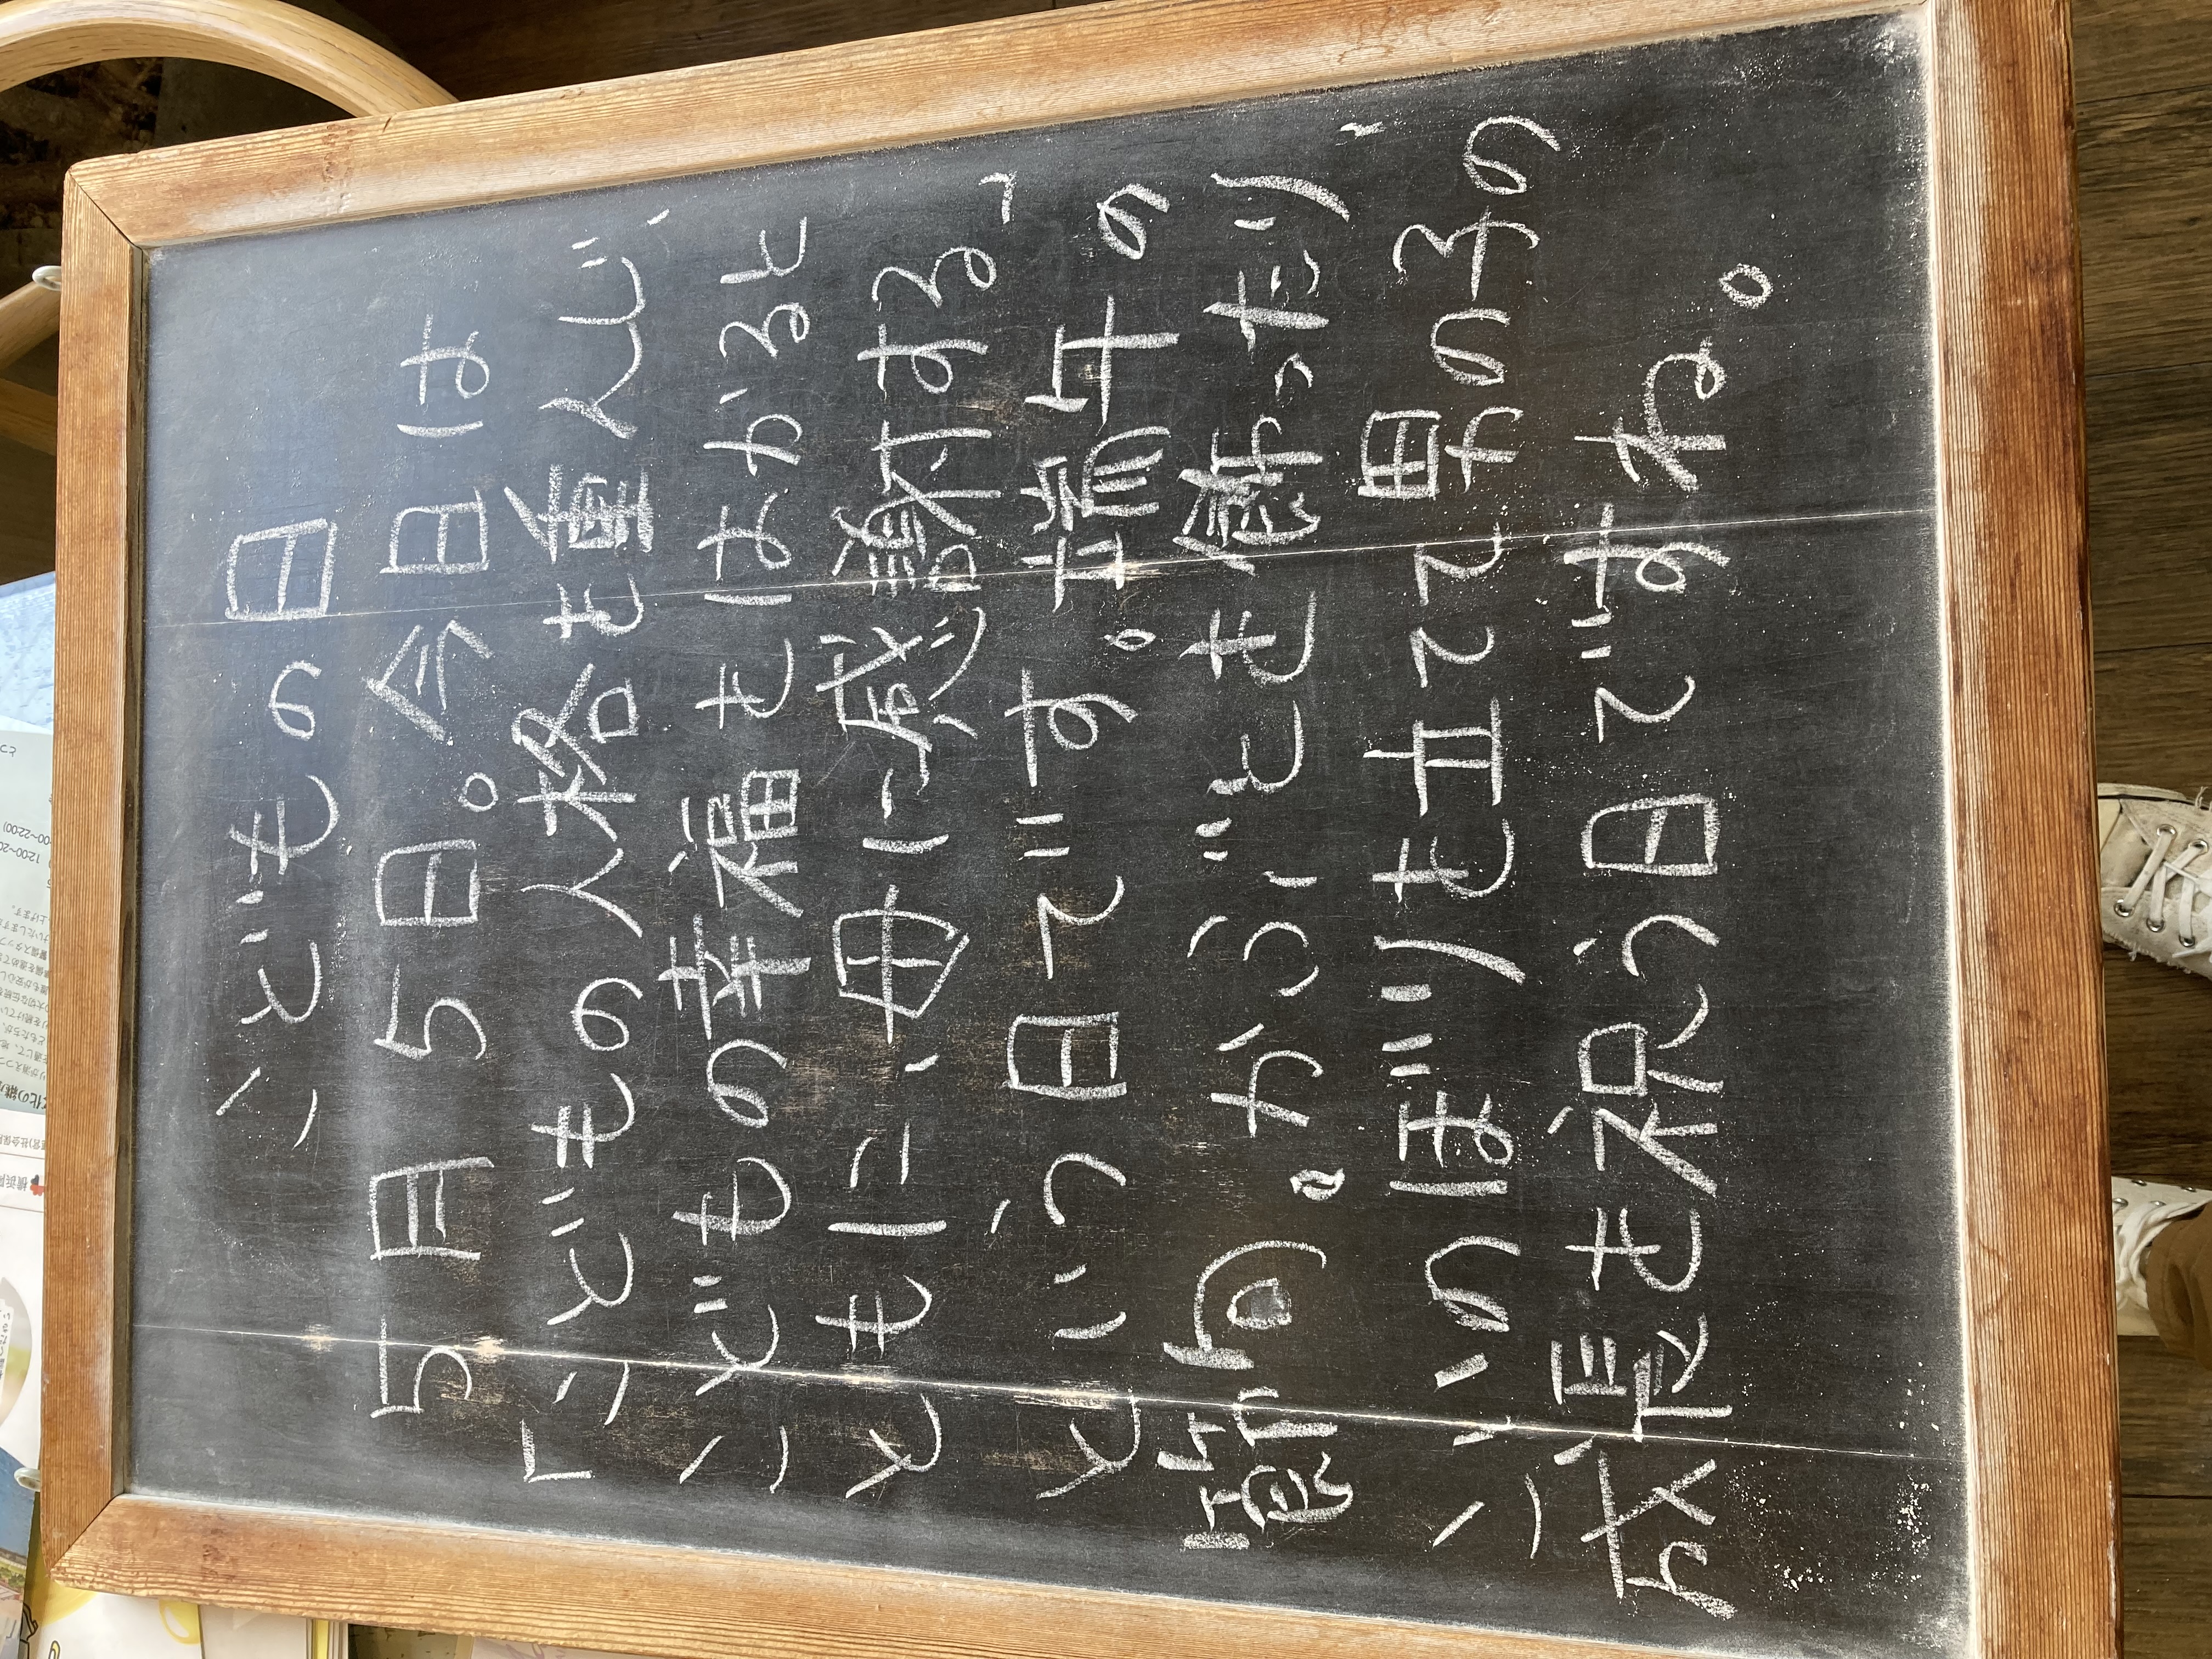 こどもの日
5月5日。今日は
「こどもの人格を重んじ、
こどもの幸福をはかると
ともに、母に感謝する」
という日です。端午の
節句。かぶとを飾ったり、
こいのぼりを立てて男の子の
成長を祝う日ですね。